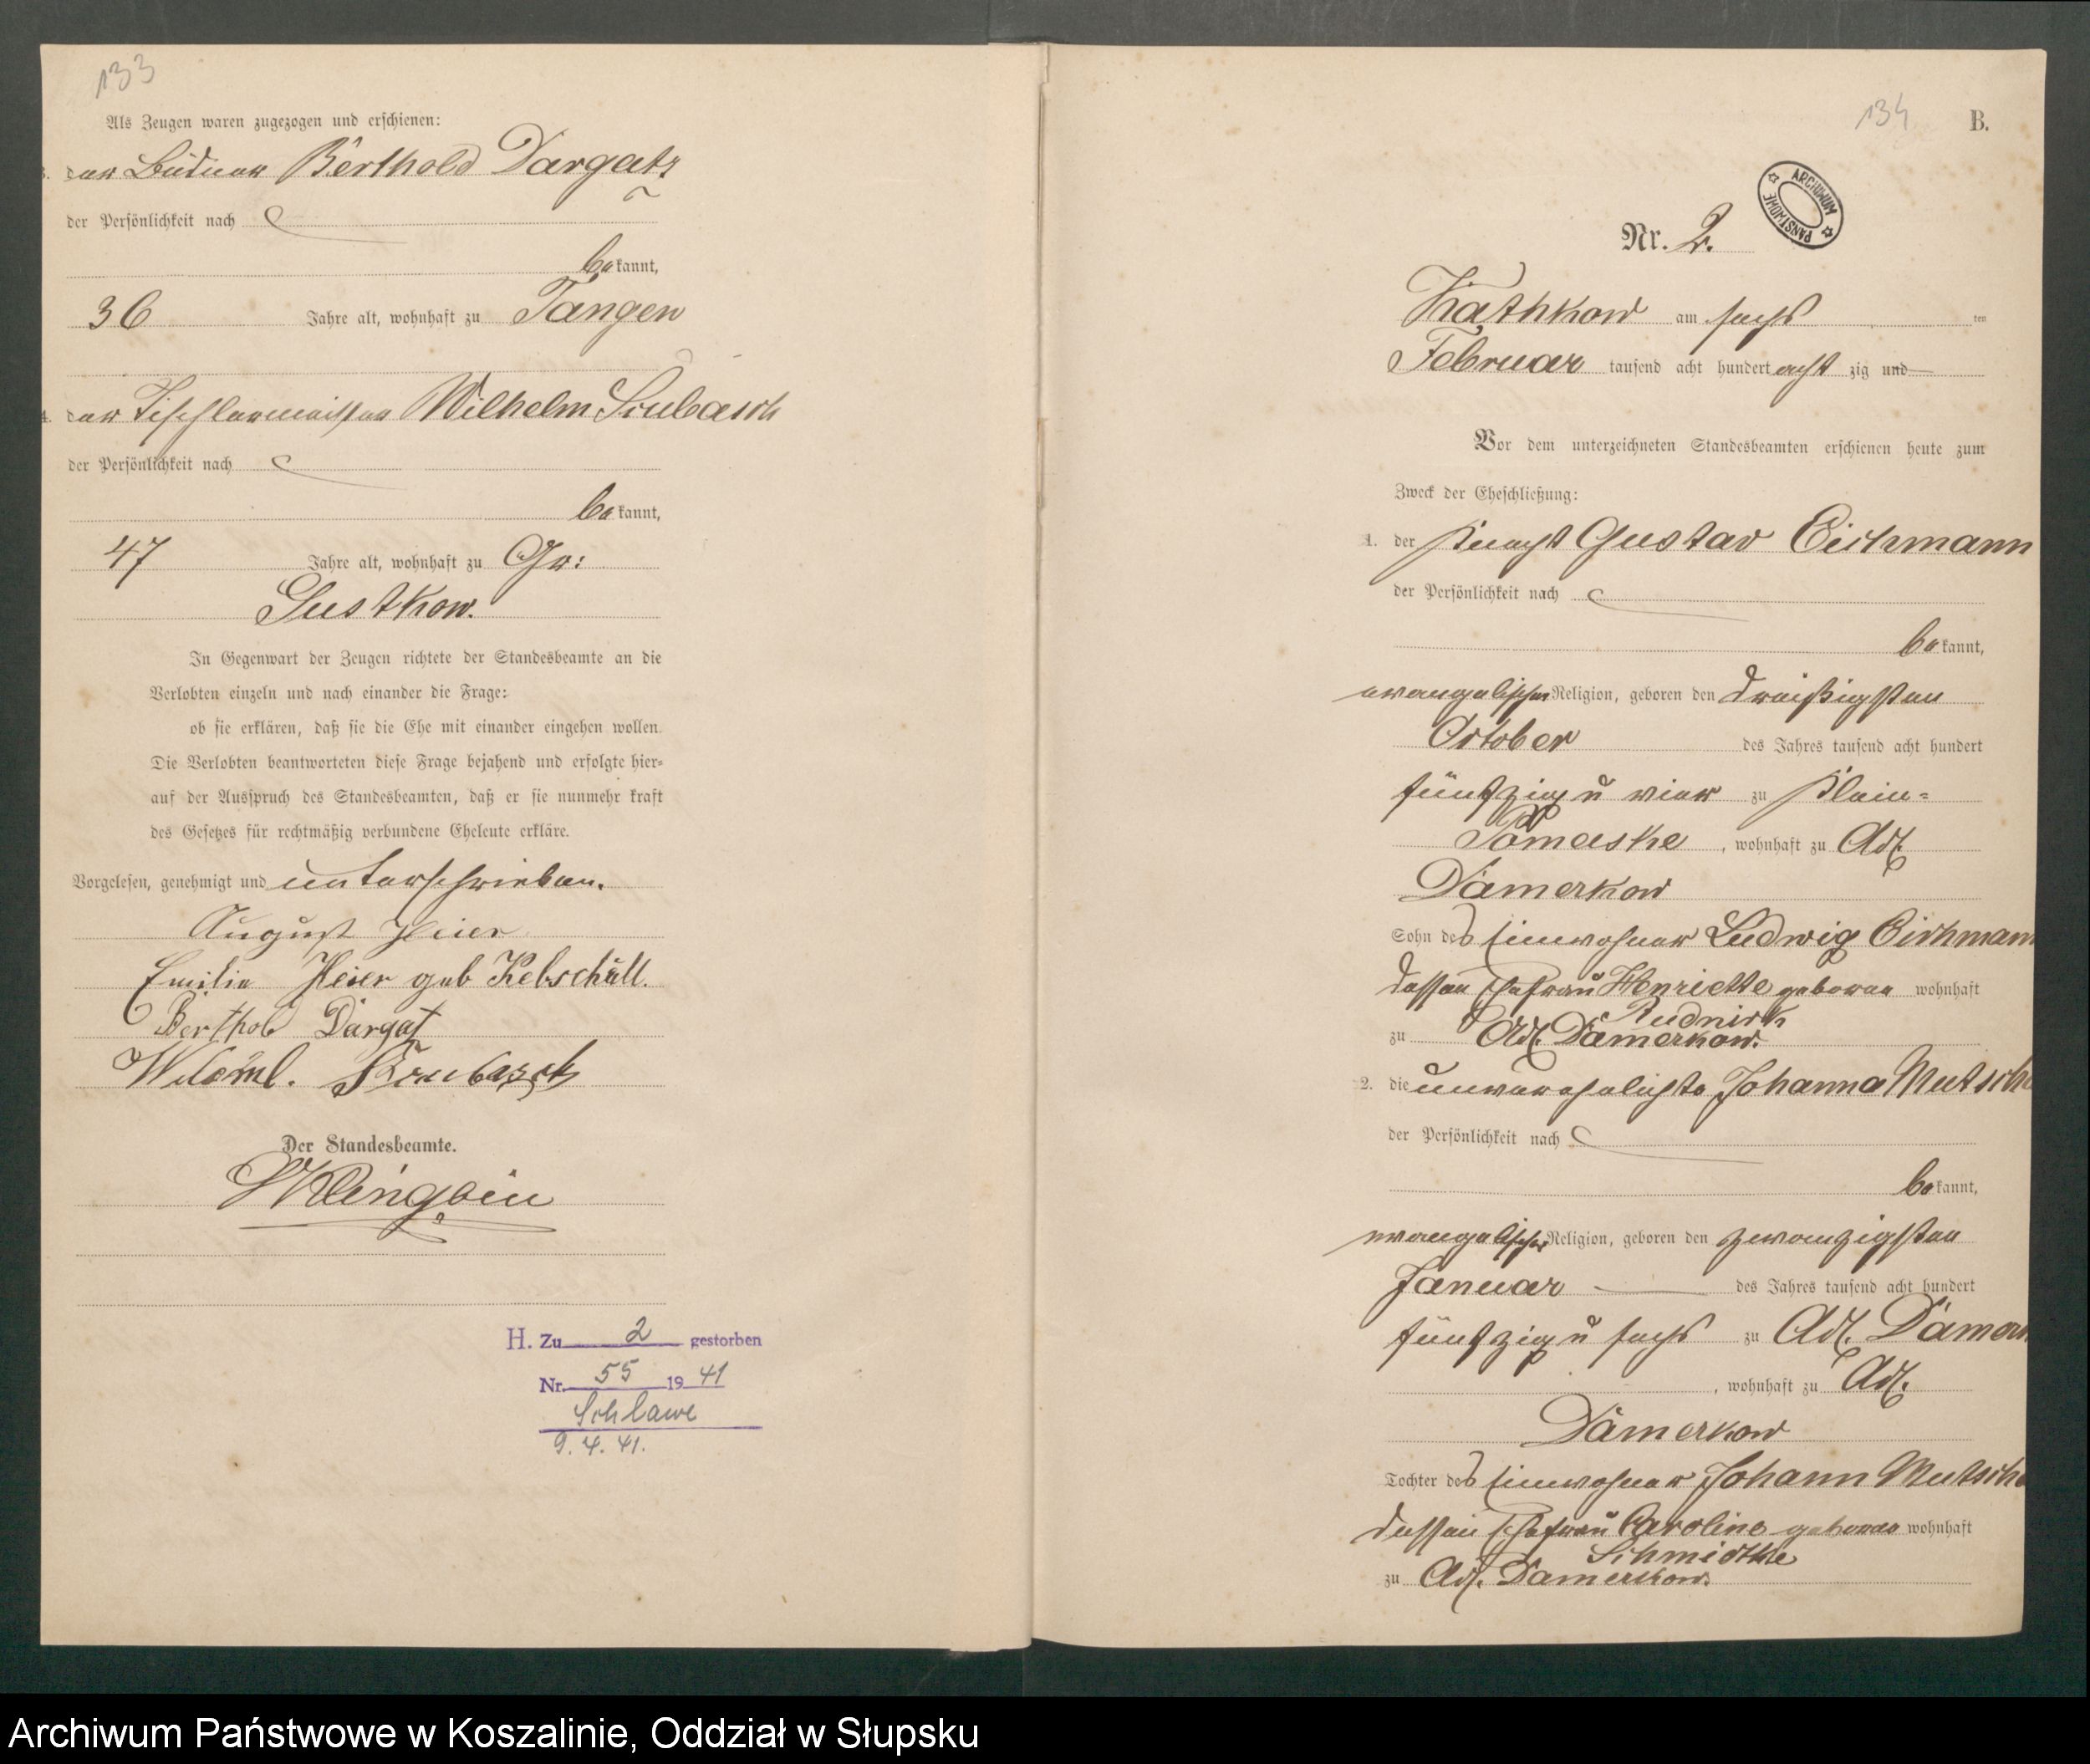 133
Als Zeugen waren zugezogen und erschienen:
3. der Büdner Berthold Dargatz
der Persönlichkeit nach
bekannt,
36 Jahre alt, wohnhaft zu Tangen
4. der Tischlermeister Wilhelm Srubasch
der Persönlichkeit nach
bekannt,
47 Jahre alt, wohnhaft zu Gr:
Gustkow.
In Gegenwart der Zeugen richtete der Standesbeamte an die
Verlobten einzeln und nach einander die Frage:
ob sie erklären, daß sie die Ehe mit einander eingehen wollen.
Die Verlobten beantworteten diese Frage bejahend und erfolgte hier-
auf der Ausspruch des Standesbeamten, daß er sie nunmehr kraft
des Gesetzes für rechtmäßig verbundene Eheleute erkläre.
Vorgelesen, genehmigt und unterschrieben.
August Heier
Emilie Heier geb Kebschull.
Berthold Dargatz
Der Standesbeamte.
H. Zu 2 gestorben
Nr. 55 1941
Schlawe
9. 4. 41.
134 B.
ARCHIWUM PAŃSTWOWE
Nr. 2.
Kathkow am sechs ten
Februar tausend acht hundert acht zig und
Vor dem unterzeichneten Standesbeamten erschienen heute zum
Zweck der Eheschließung:
1. der Knecht Gustav Eichmann
der Persönlichkeit nach
bekannt,
evangelischer Religion, geboren den dreißigsten
October des Jahres tausend acht hundert
fünfzig u vier zu Klein-
Pomeiske, wohnhaft zu Adl.
Damerkow
Sohn des Einwohner Ludwig Eichmann
dessen Ehefrau Henriette geborne wohnhaft
Rudnick
zu Adl. Damerkow.
2. die unverehelichte Johanna Mutsch
der Persönlichkeit nach
bekannt,
evangelischer Religion, geboren den zwanzigsten
Januar des Jahres tausend acht hundert
fünfzig u sechs zu Adl. Damerk
, wohnhaft zu Adl.
Damerkow
Tochter des Einwohner Johann Mutsch
dessen Ehefrau Caroline geborne wohnhaft
Schmidtke
zu Adl. Damerkow.
Archiwum Państwowe w Koszalinie, Oddział w Słupsku